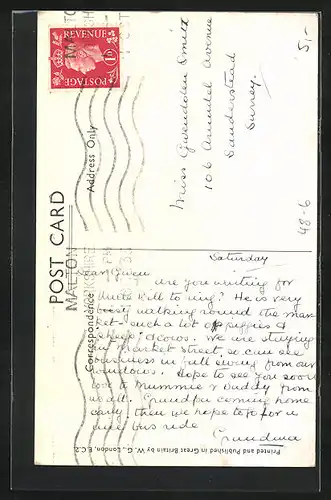 POSTAGE
REVENUE
1D
POST CARD
Correspondence
Address Only
MALTON
YORKSHIRE
5/-
48-6
Miss Gwendolen Smith
106 Arundel Avenue
Sanderstead
Surrey.
Saturday
Dear Gwen
are you waiting for
Uncle Bill to ring? He is very
busy walking round the mar-
ket - such a lot of piggies &
sheep & cows. We are staying
in market street, so can see
business in full swing from our
windows. Hope to see you soon
love to Mummie & Daddy from
us all. Grandpa coming home
early then we hope to go for a
nice bus ride
Grandma
Printed and Published in Great Britain by W. & G., London, E.C.2.